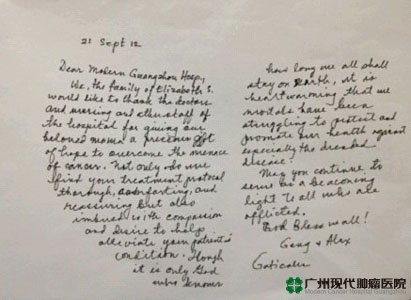 21 Sept 12
Dear Modern Guangzhou Hosp.,
We, the family of Elizabeth S.
would like to thank the doctors
and nursing and other staff of
the hospital for giving our
beloved mama a precious gift
of hope to overcome the menace
of cancer. Not only do we
find your treatment protocol
thorough, comforting, and
reassuring but also
imbued with compassion
and desire to help
alleviate your patient's
condition. Though
it is only God
who knows
how long we all shall
stay on Earth, it is
heartwarming that we
mortals have been
struggling to protect and
promote our health against
especially the dreaded
disease.
May you continue to
serve as a beaconing
light to all who are
afflicted.
God Bless us all!
Alex
广州现代肿瘤医院
Modern Cancer Hospital Guangzhou